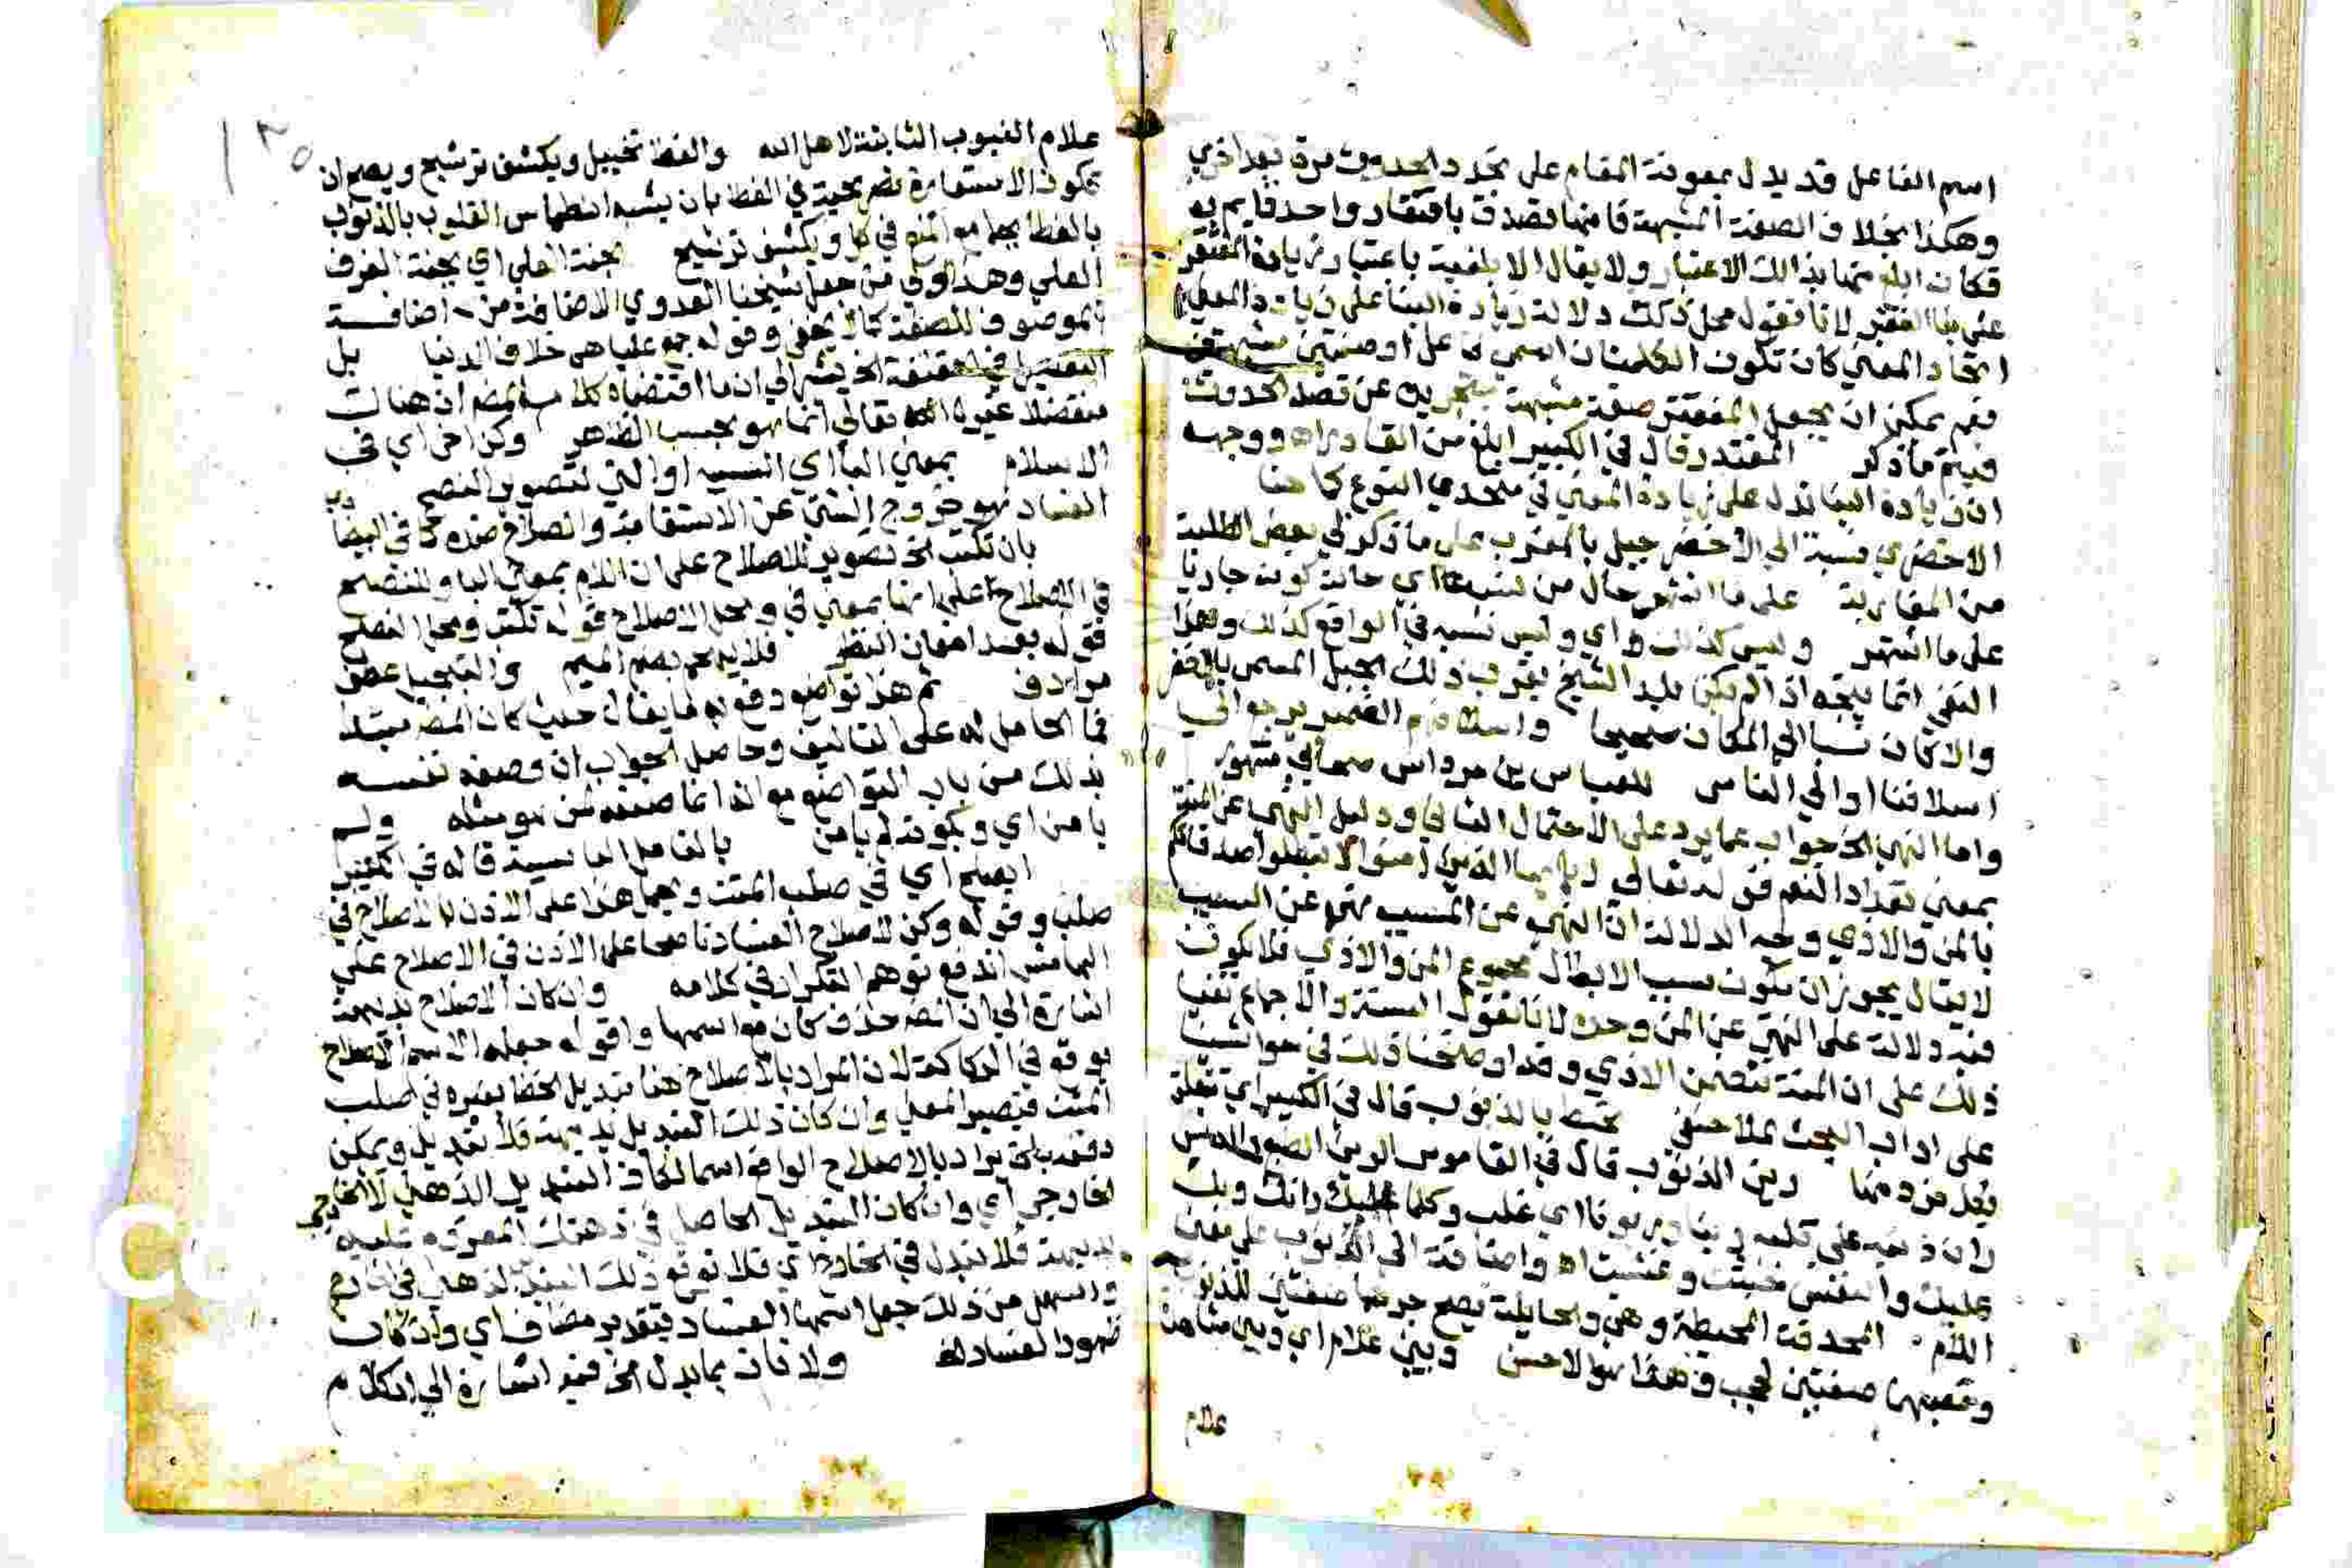 اسم الفاعل قد يدل بمعونة المقام على تجدد الحدوث مرة بعد اخرى
وهكذا بخلاف الصفة المشبهة فانها تصدق بافتقار واحد قايم به
فكان ابلغ منها بذالك الاعتبار ولا يقال الابلغية باعتبار زيادة المفتقر
على بنا الفقير لانا نقول محل ذلك دلالة زيادة البنا على زيادة المعنى
اتحاد المعنى كان تكون الكلمتان اسمى فاعل او صفتين مشبهتين
نعم يمكن ان يجعل المفتقر صفة مشبهة بتجريده عن قصد الحدوث
فيتم ما ذكر المقتدر قال في الكبير ابلغ من القادر اه ووجهه
ان زيادة البنا تدل على زيادة المعنى في متحدى النوع كما هنا
الاخضري نسبة الى الاخضر جبل بالمغرب على ما ذكر لي بعض الطلبة
من المغاربة على ما اشتهر حال من نسبة اي حالة كونه جاريا
على ما اشتهر وليس كذلك اي وليس نسبه في الواقع كذلك وهذا
النفي انما يتجه اذا لم يكن بلد الشيخ بقرب ذلك الجبل المسمى بالاخضر
والا كان نسبا الى المكان صحيحا الضمير يرجع الى
اسلافنا او الى الناس للعباس بن مرداس صحابي مشهور
واما النهي الخ جواب عما يرد على الاحتمال الثاني ودليل النهي عن المنة
بمعنى تعداد النعم قوله تعالى يا ايها الذين امنوا لا تبطلوا صدقاتكم
بالمن والاذى وجه الدلالة ان النهي عن المسبب نهى عن السبب
لا يقال يجوز ان يكون سبب الابطال مجموع المن والاذى فلا يكون
فيه دلالة على النهي عن المن وحده لانا نقول السنة والاجماع
ذلك على ان المنة تتضمن الاذى وقد اوضحنا ذلك في حواشينا
على اداب البحث لملا حنفي بالذنوب قال في الكبير اي تتعلق
رين الذنوب قال في القاموس الرين الطبع والدنس
ران ذنبه على قلبه رينا وريونا اي غلب وكلما غلبك رانك وبك
عليك والنفس خبثت وغشيت اه واضافته الى الذنوب على معنى
اللام المحدقة المحيطة وهي والحايلة يصح جرهما صفتين للذنوب
ونصبهما صفتين لحجب وهذا هو الاحسن وبين علام اي وبين مشاهدة
علام
١٣٥
علام الغيوب الثابتة لاهل الله والغطا تخييل ويكشف ترشيح ويصح ان
تكون الاستعارة تصريحية في الغطا بان يشبه انطماس القلوب بالذنوب
بالغطا بجامع المنع في كل ويكشف ترشيح بجنة العلي اي بجنة الغرف
العلي وهذا اولى من جعل شيخنا العدوي الاضافة من اضافة
الموصوف للصفة كما لا يخفى وقوله جمع عليا هي خلاف الدنيا بل
المفتقر في الحقيقة الخ يشير الى ان ما اقتضاه كلام المص ان هناك
متفضلا غير الله تعالى انما هو بحسب الظاهر وكن اخي اي في
الاسلام بمعنى البا اي السببية او التي لتصوير النصح
الفساد فهو خروج الشي عن الاستقامة والصلاح ضده كما في البيضا
بان تكتب الخ تصوير للاصلاح على ان اللام بمعنى البا وللنصح
في الاصلاح على انها بمعنى في ومحل الاصلاح قوله تكتب ومحل النصح
قوله بعد امعان النظر فلا يدعم بضم الميم عطف
مرادف ثم هذا تواضع دفع به ما يقال حيث كان المص مبتدا
فما الحامل له على التاليف وحاصل الجواب ان وصفه نفسه
بذلك من باب التواضع مع انه انما صنفه لمن هو مثله ولم
يامن اي وبكونه لم يامن بالفاصل البا سببية قاله في الكبير
اصلح اي في صلب المتن وبحمل هذا على الاذن في الاصلاح في
صلبه وقوله وكن لاصلاح الفساد ناصحا على الاذن في الاصلاح على
الهامش اندفع توهم التكرار في كلامه وان كان الاصلاح بديهة
اشارة الى ان المص حذف كان مع اسمها واقول جعله الاسم الاصلاح
يوقع في الركاكة لان المراد بالاصلاح هنا تبديل الخطا بغيره في صلب
المتن فيصير المعنى وان كان ذلك التبديل بديهة فلا تبديل ويمكن
دفعه بان يراد بالاصلاح الواقع اسما لكان التبديل الذهني لا الخارجي
الخارجي اي وان كان التبديل الحاصل في ذهنك
بديهة فلا تبدل في الخارج اي فلا توقع ذلك التبديل الذهني في الخارج
واسهل من ذلك جعل اسمها الفساد بتقدير مضاف اي وان كان
ظهور الفساد له ولا فات بما بدل الخ فيه اشارة الى الكلام